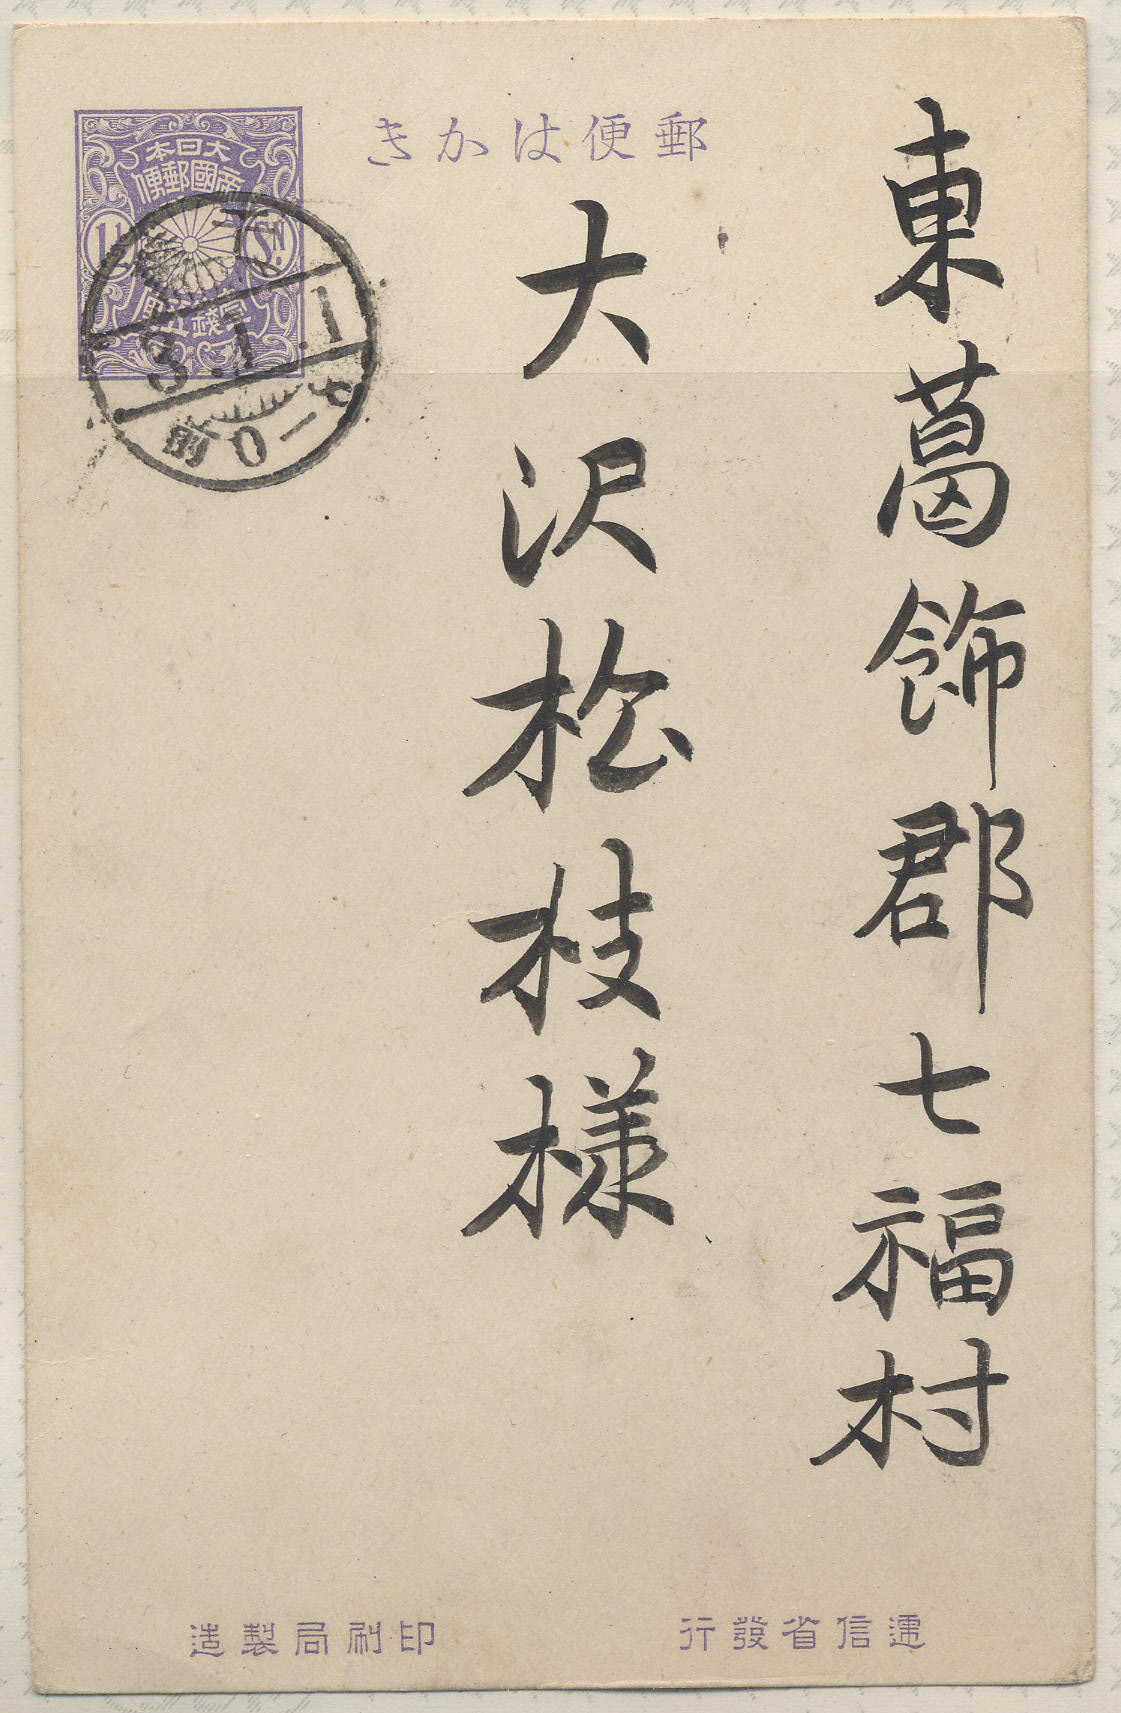 郵便はかき
大日本
帝國郵便
1½ Sn.
壹錢五厘
3.1.1
前0-7
東葛飾郡七福村
大沢松枝様
逓信省發行
印刷局製造